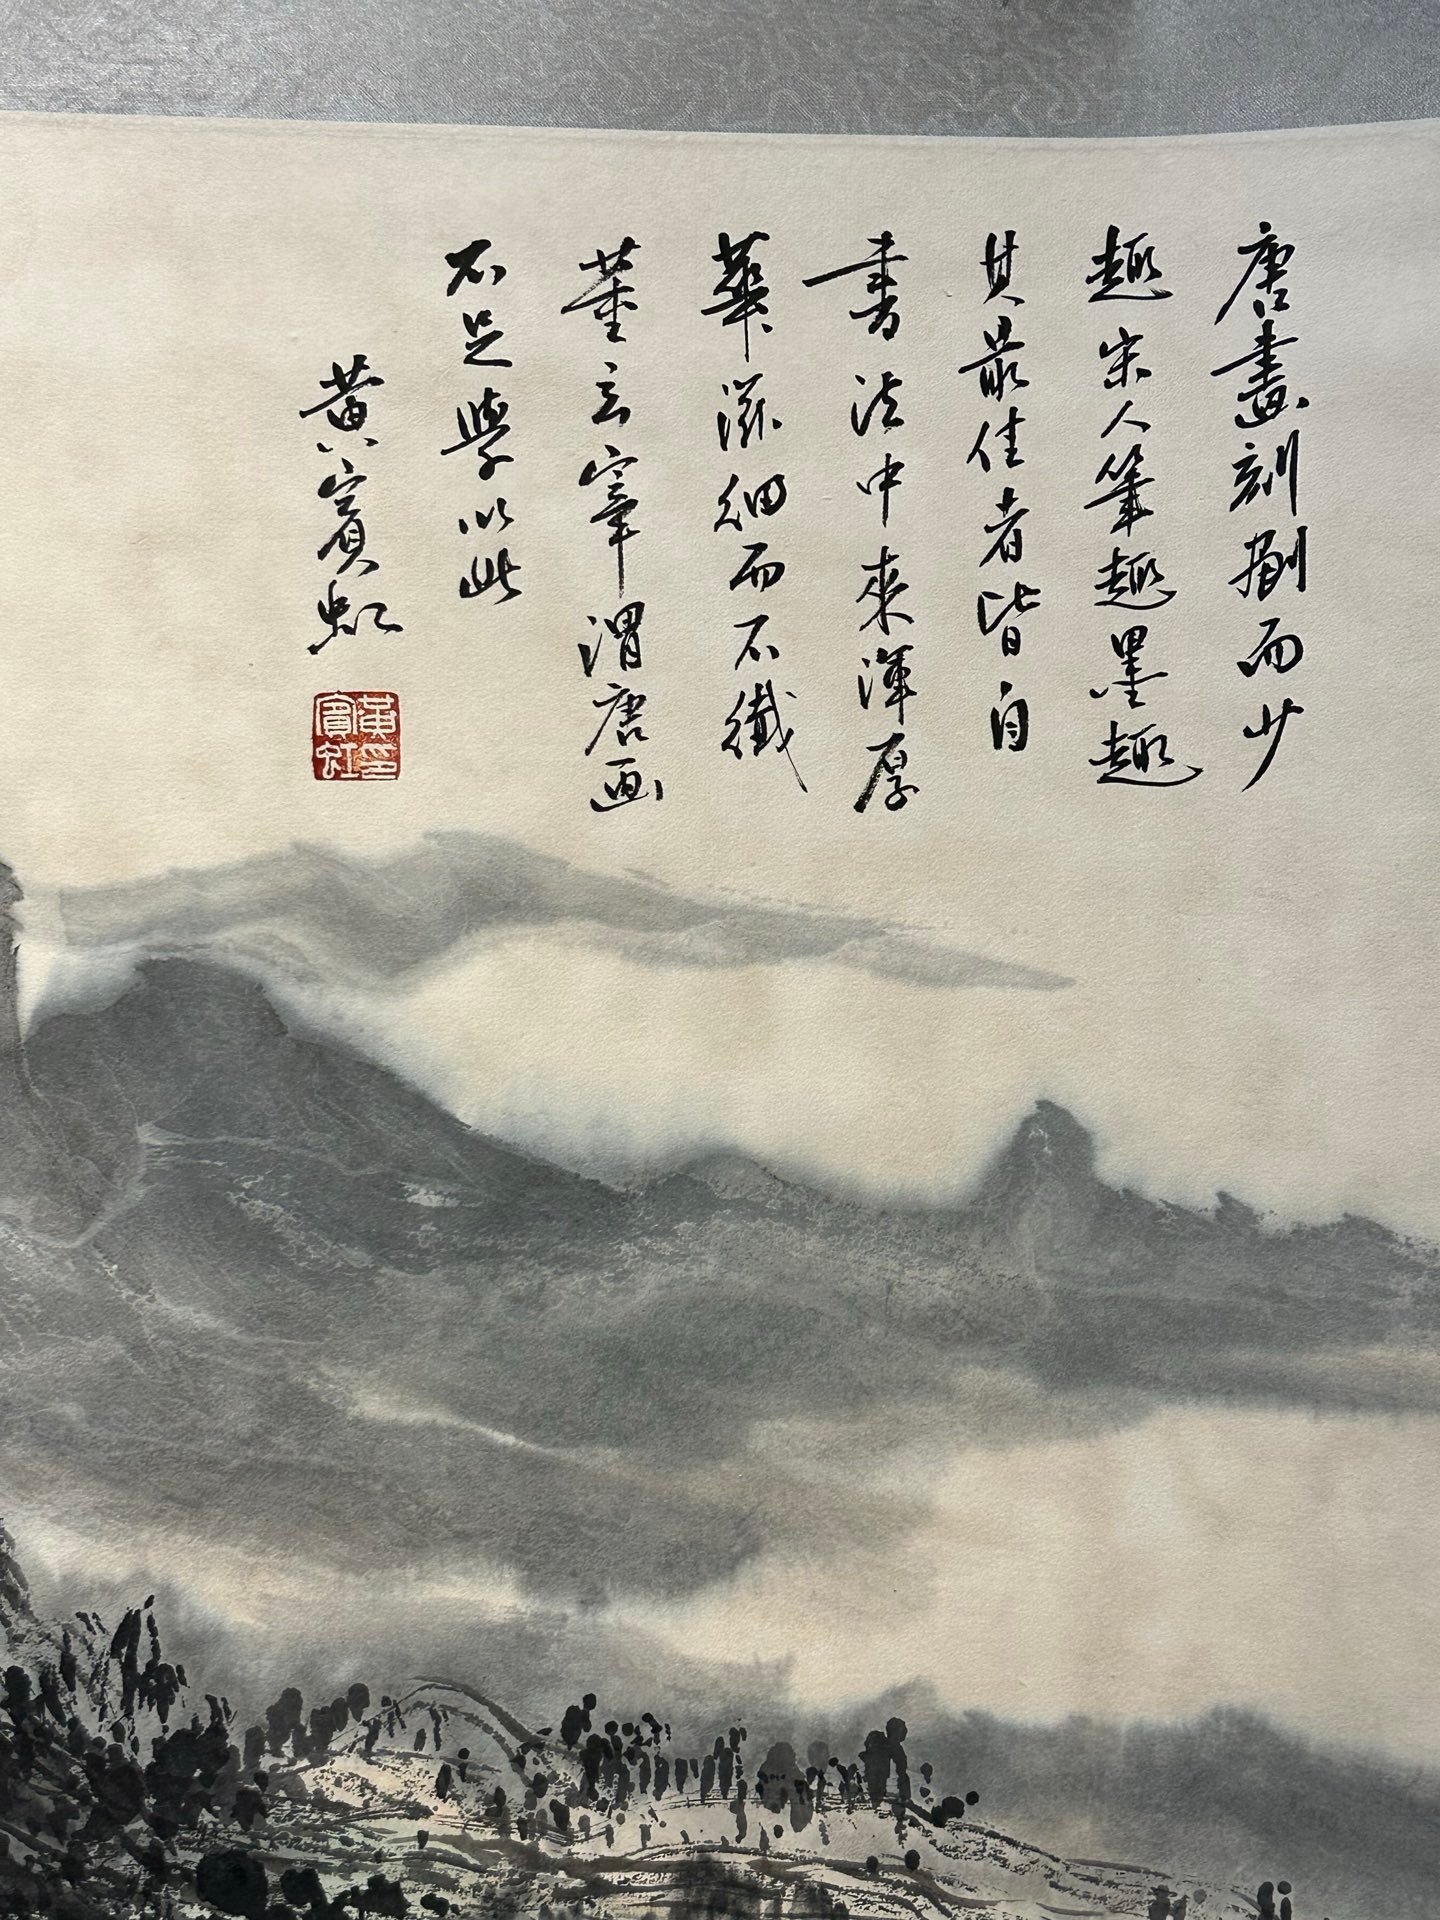 唐畫刻劃而少
趣宋人筆趣墨趣
其最佳者皆自
書法中來渾厚
華滋細而不纖
董玄宰謂唐画
不足學以此
黄賓虹
黃賓虹印